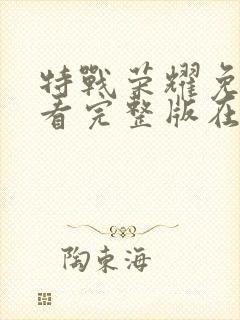 特戰荣耀免
看完整版在
陶東海